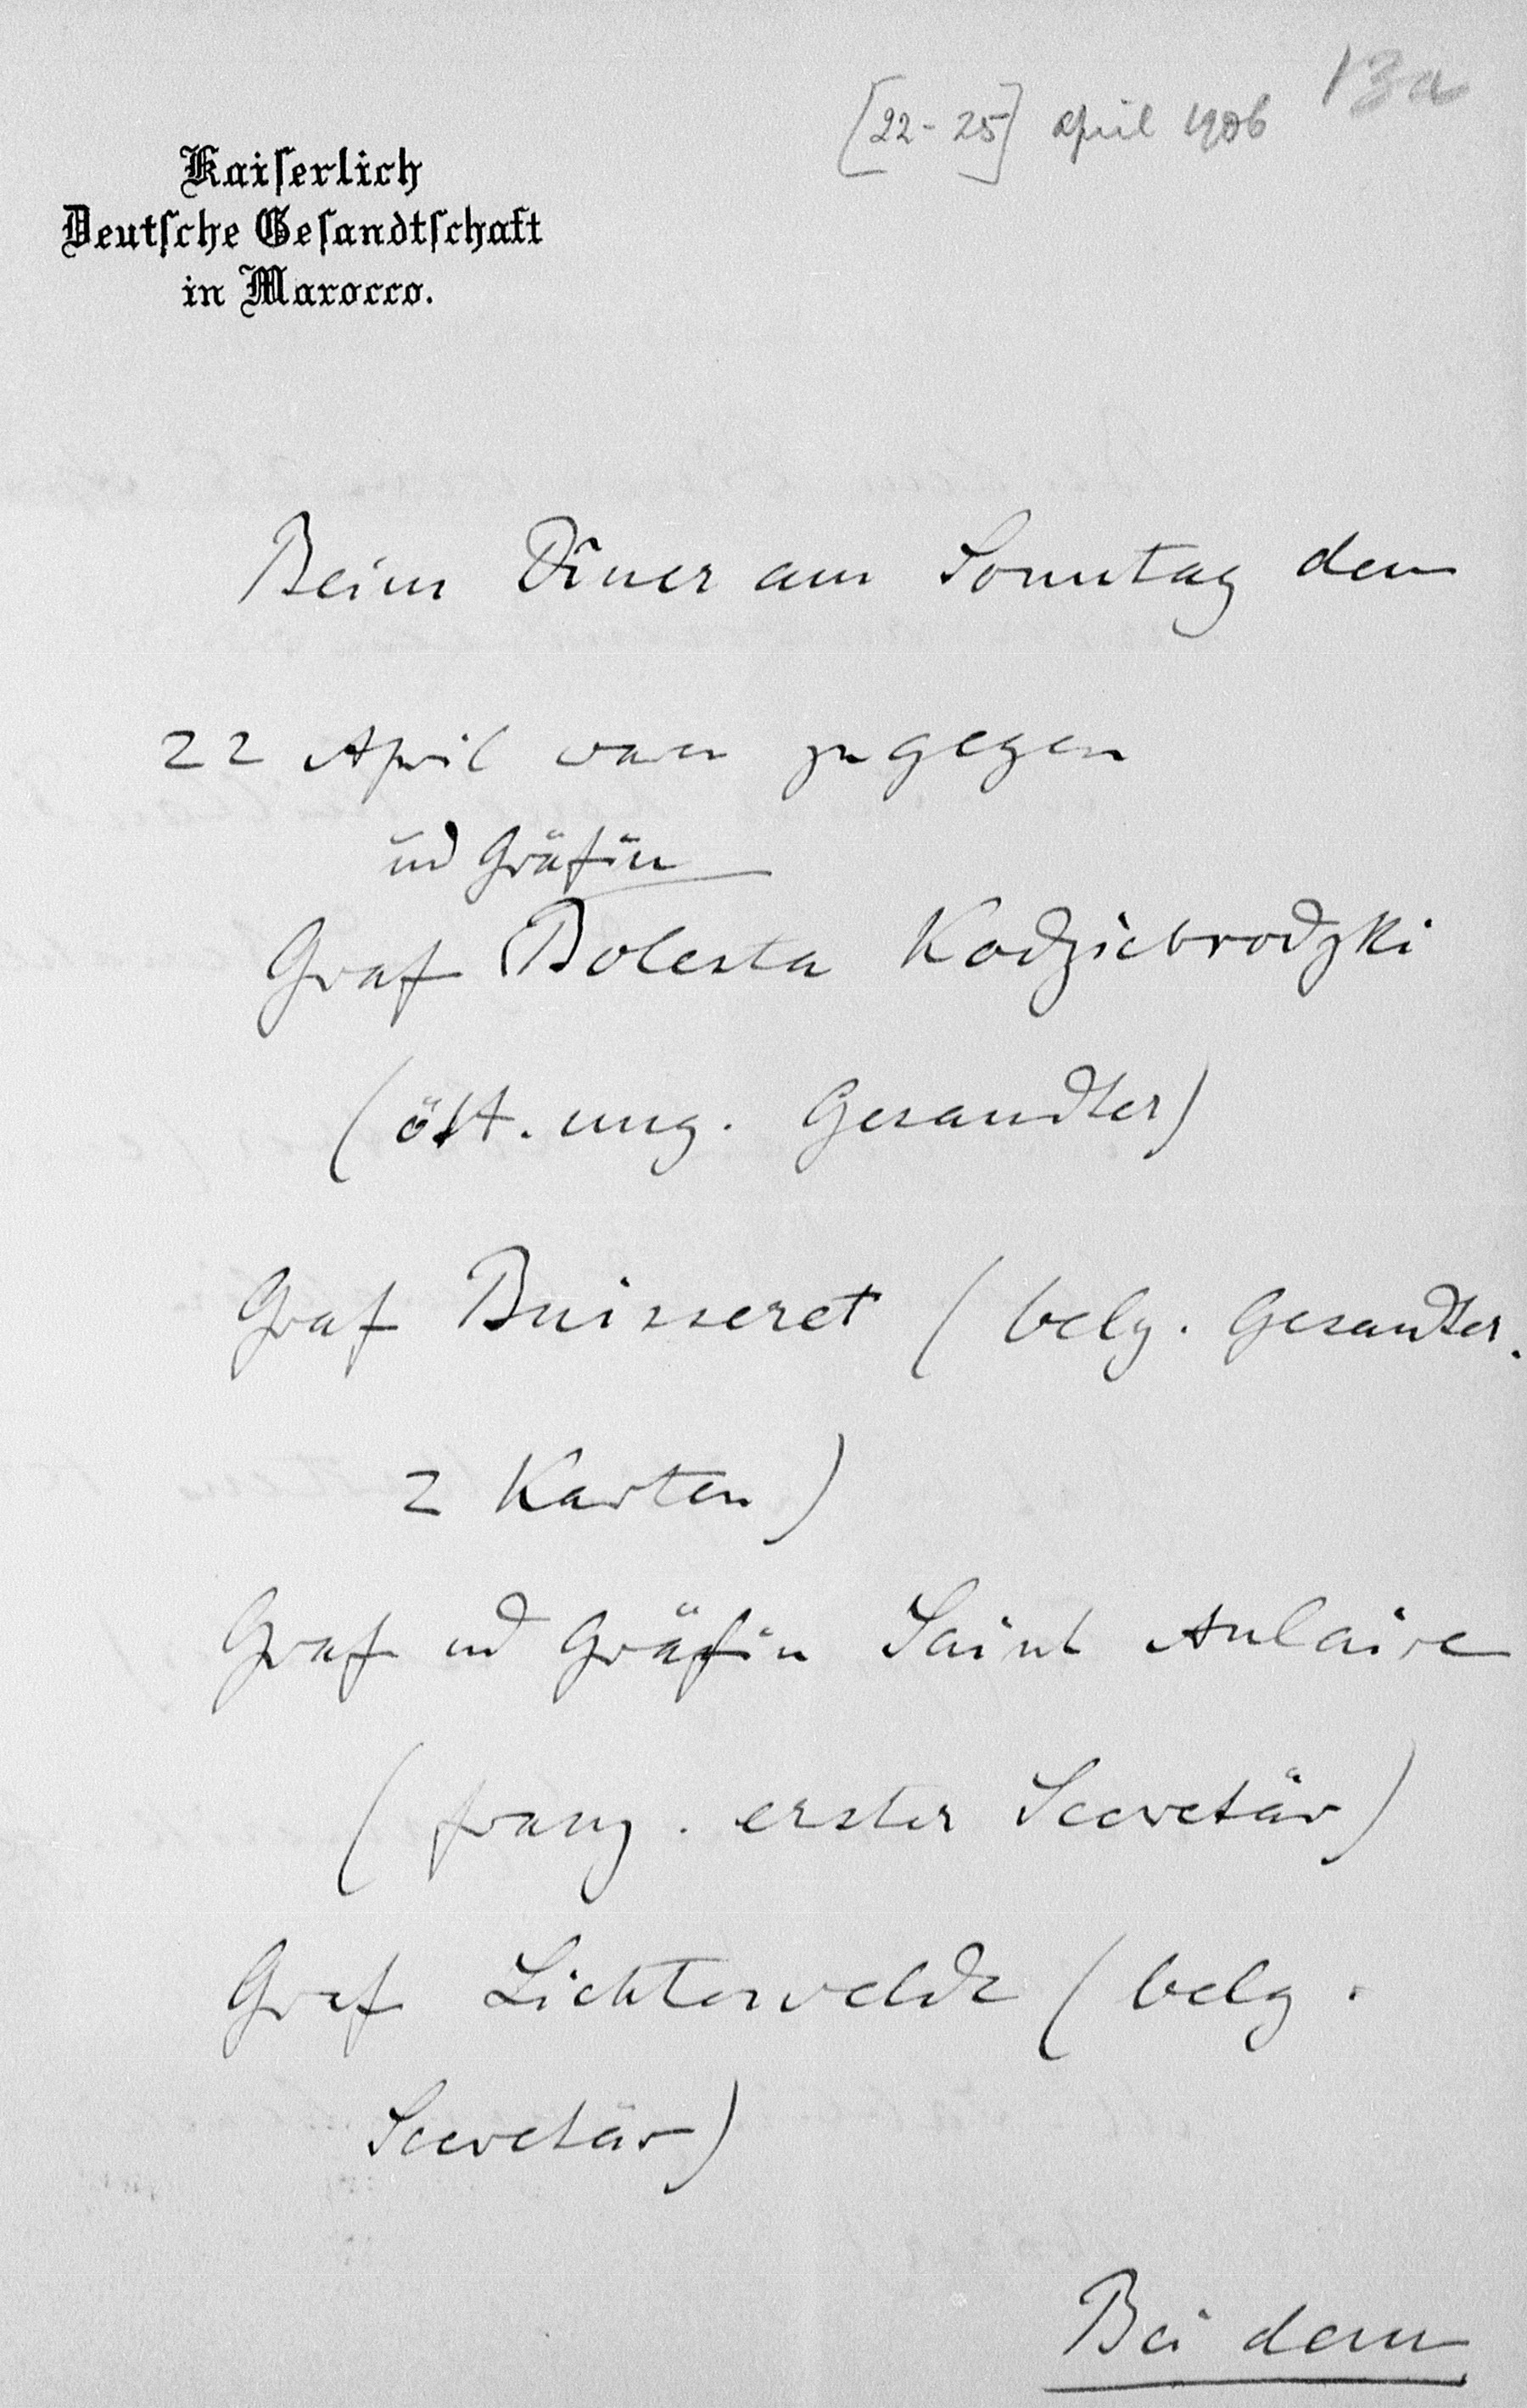 13a
[22-25] april 1906
Kaiserlich
Deutsche Gesandtschaft
in Marocco.
Beim Dîner am Sonntag den
22 April waren zugegen
und Gräfin
Graf Bolesta Kodziebrodzki
(öst. ung. Gesandter)
Graf Buisseret (belg. Gesandter.
2 Karten)
Graf und Gräfin Saint Aulaire
(franz. erster Secretär)
Graf Lichtervelde (belg.
Secretär)
Bei dem